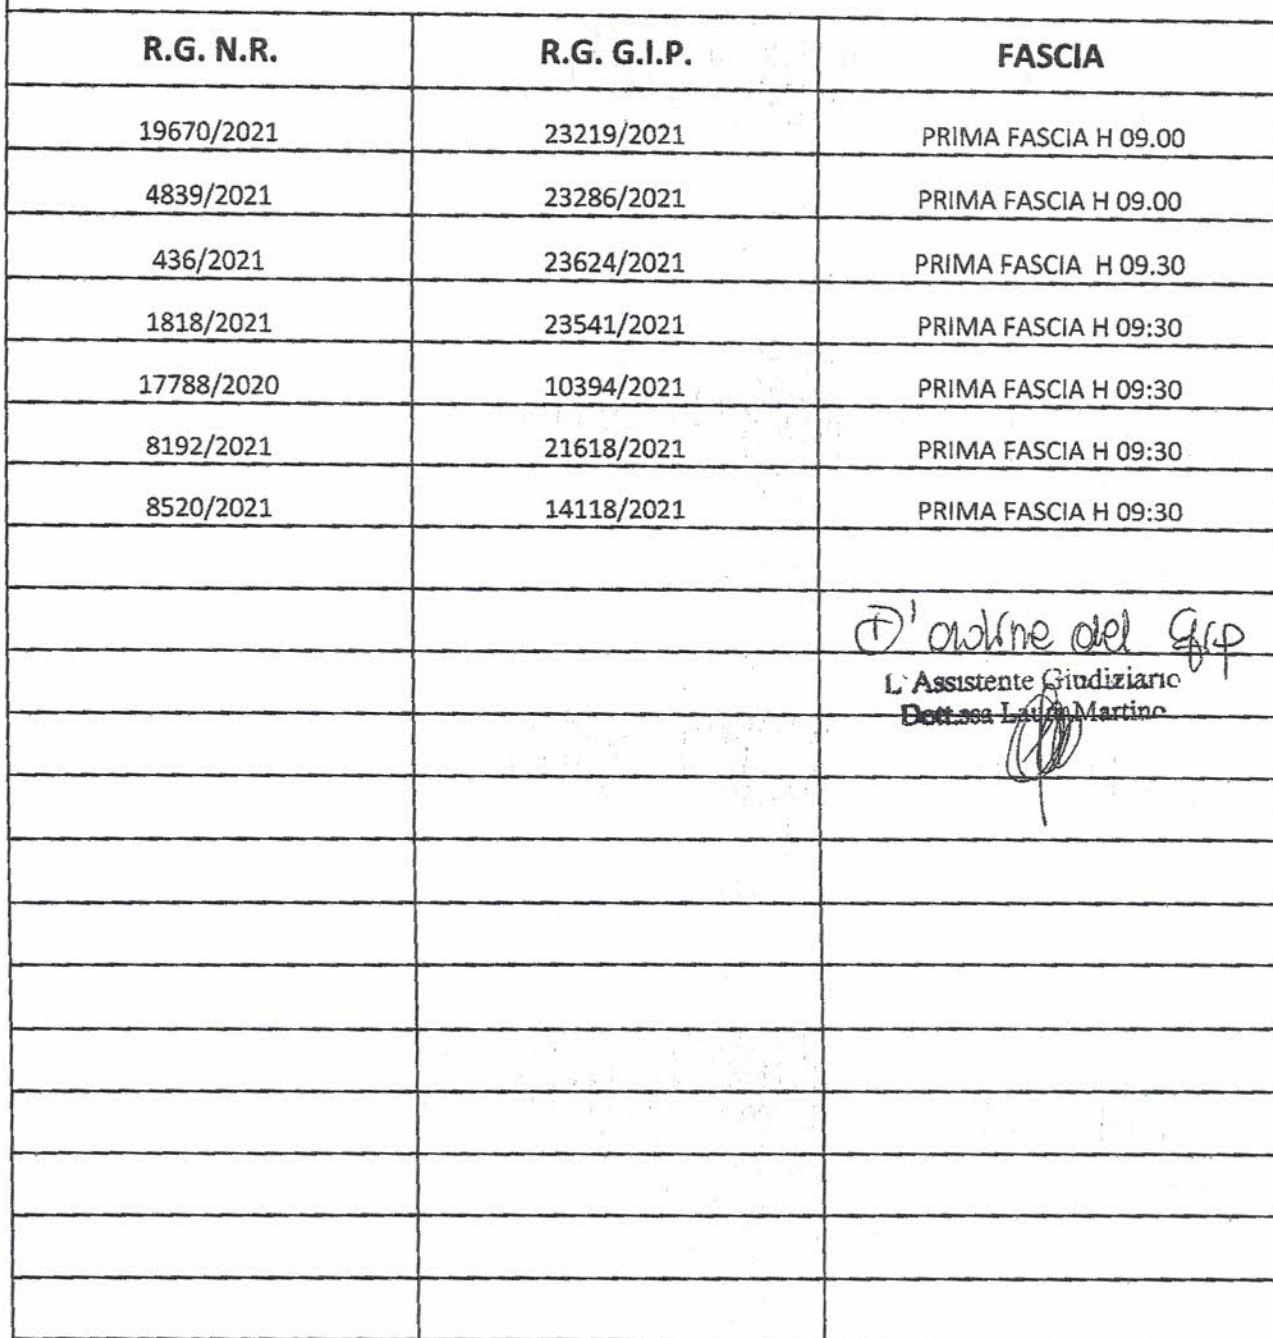 R.G. N.R. R.G. G.I.P. FASCIA
19670/2021 23219/2021 PRIMA FASCIA H 09.00
4839/2021 23286/2021 PRIMA FASCIA H 09.00
436/2021 23624/2021 PRIMA FASCIA H 09.30
1818/2021 23541/2021 PRIMA FASCIA H 09:30
17788/2020 10394/2021 PRIMA FASCIA H 09:30
8192/2021 21618/2021 PRIMA FASCIA H 09:30
8520/2021 14118/2021 PRIMA FASCIA H 09:30
D'ordine del Gip
L'Assistente Giudiziario
Dott.ssa Laura Martino